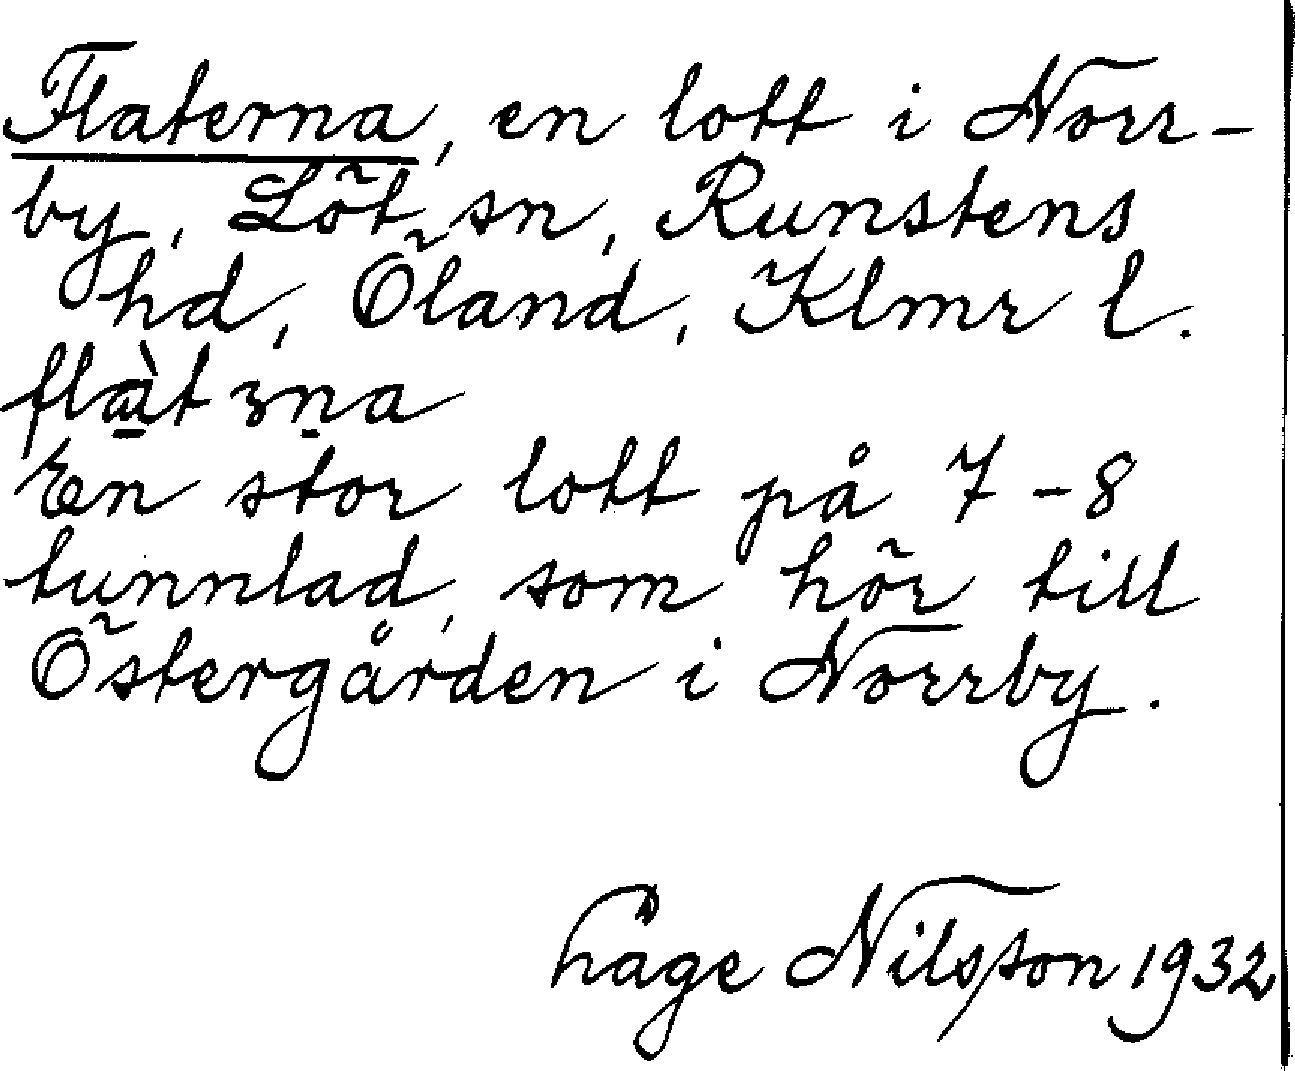 Flaterna, en lott i Norr-
by, Löt sn, Runstens
hd, Öland, Klmr l.
flàtɜna
En stor lott på 7-8
tunnlad, som hör till
Östergården i Norrby.
håge Nilsson 1932